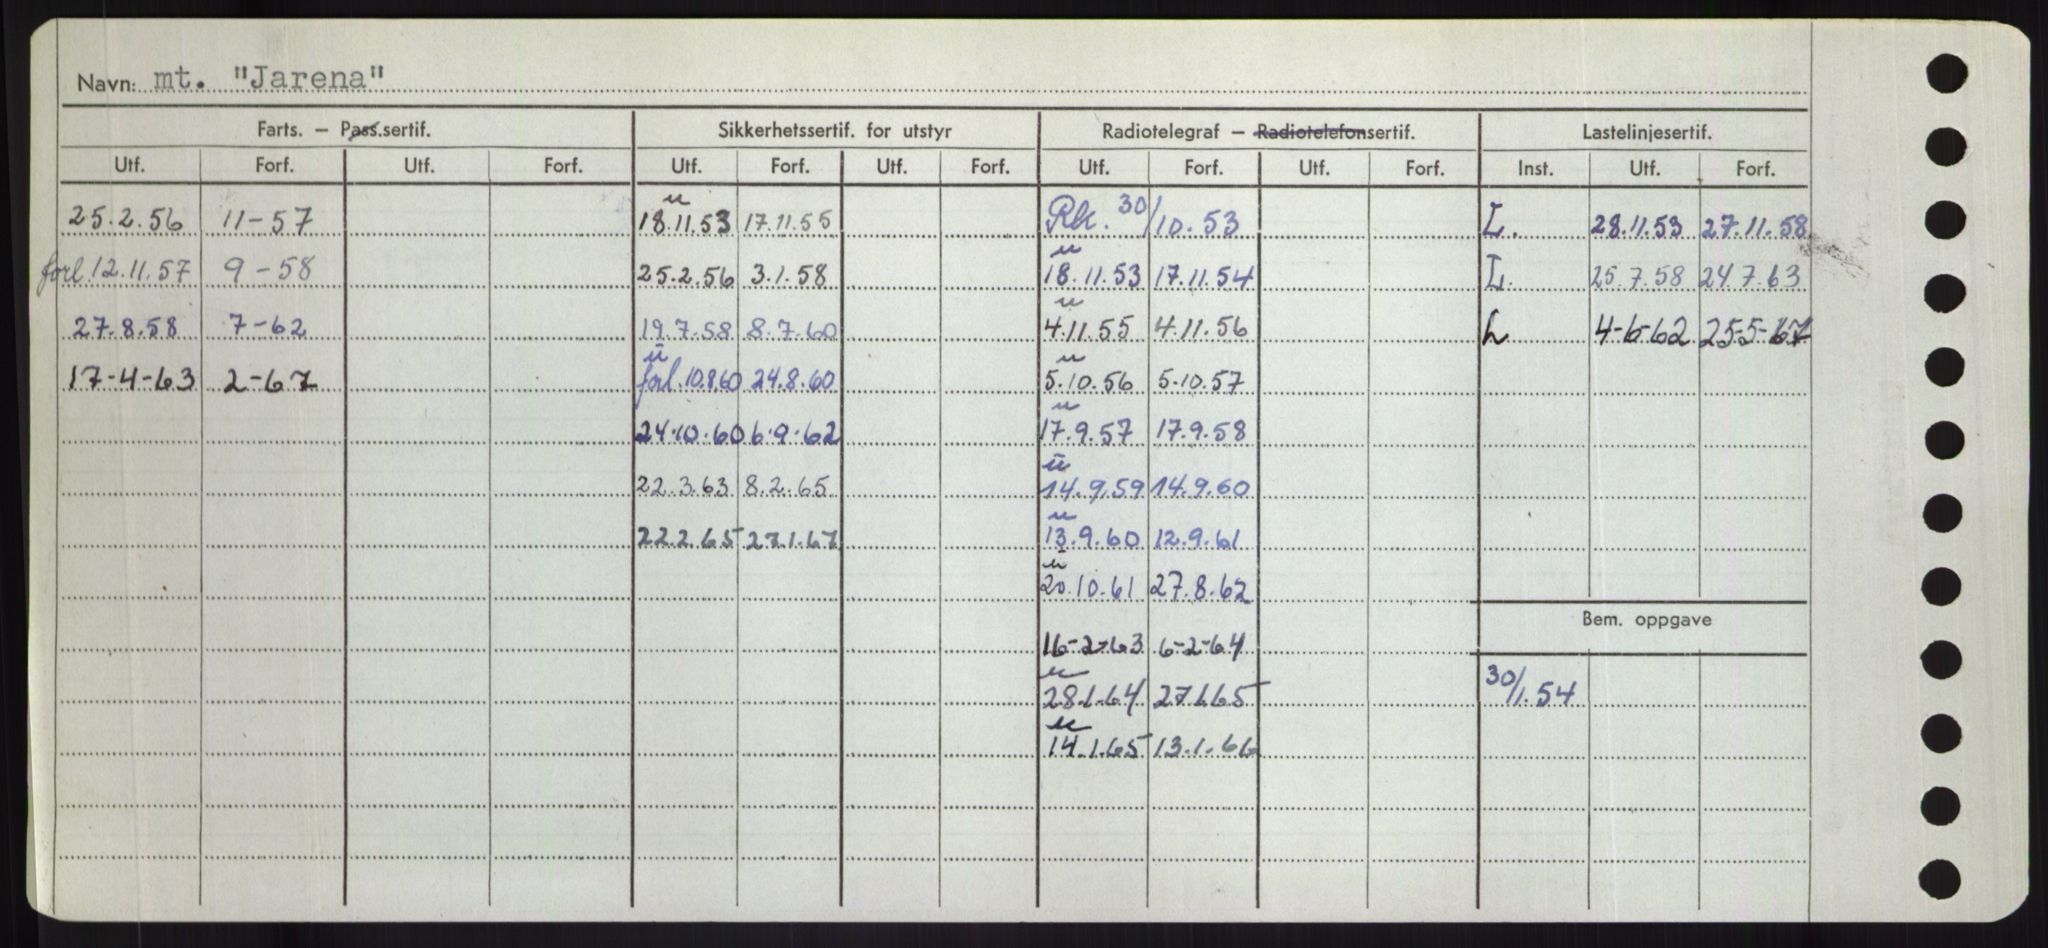 Navn: mt. "Jarena"
Farts. – Pass.sertif. Sikkerhetssertif. for utstyr Radiotelegraf – Radiotelefonsertif. Lastelinjesertif.
Utf. Forf. Utf. Forf. Utf. Forf. Utf. Forf. Utf. Forf. Utf. Forf. Inst. Utf. Forf.
u
25.2.56 11-57 18.11.53 17.11.55 Rk. 30/10.53 L. 28.11.53 27.11.58
u
forl.12.11.57 9-58 25.2.56 3.1.58 18.11.53 17.11.54 L. 25.7.58 24.7.63
u
27.8.58 7-62 19.7.58 8.7.60 4.11.55 4.11.56 L 4-6-62 25-5-67
u u
17-4-63 2-67 forl.10.8.60 24.8.60 5.10.56 5.10.57
u
24.10.60 6.9.62 17.9.57 17.9.58
u
22.3.63 8.2.65 14.9.59 14.9.60
u
22.2.65 27.1.67 13.9.60 12.9.61
u
20.10.61 27.8.62
Bem. oppgave
16-2-63 6-2-64
u
28.1.64 27.1.65 30/1.54
u
14.1.65 13.1.66